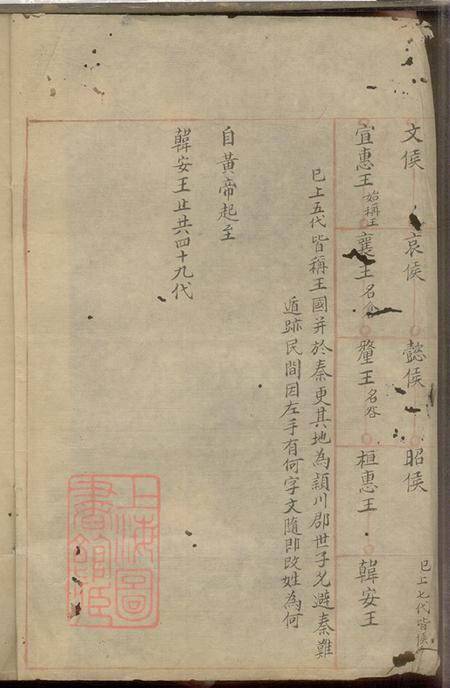 文侯 哀侯 懿侯 昭侯 已上七代皆侯
宣惠王 始稱王 襄王 名倉 釐王 名咎 桓惠王 韓安王
已上五代皆稱王國并於秦更其地為潁川郡世子允避秦難
遁跡民間因左手有何字文隨即改姓為何
自黃帝起至
韓安王止共四十九代
上海圖
書館藏